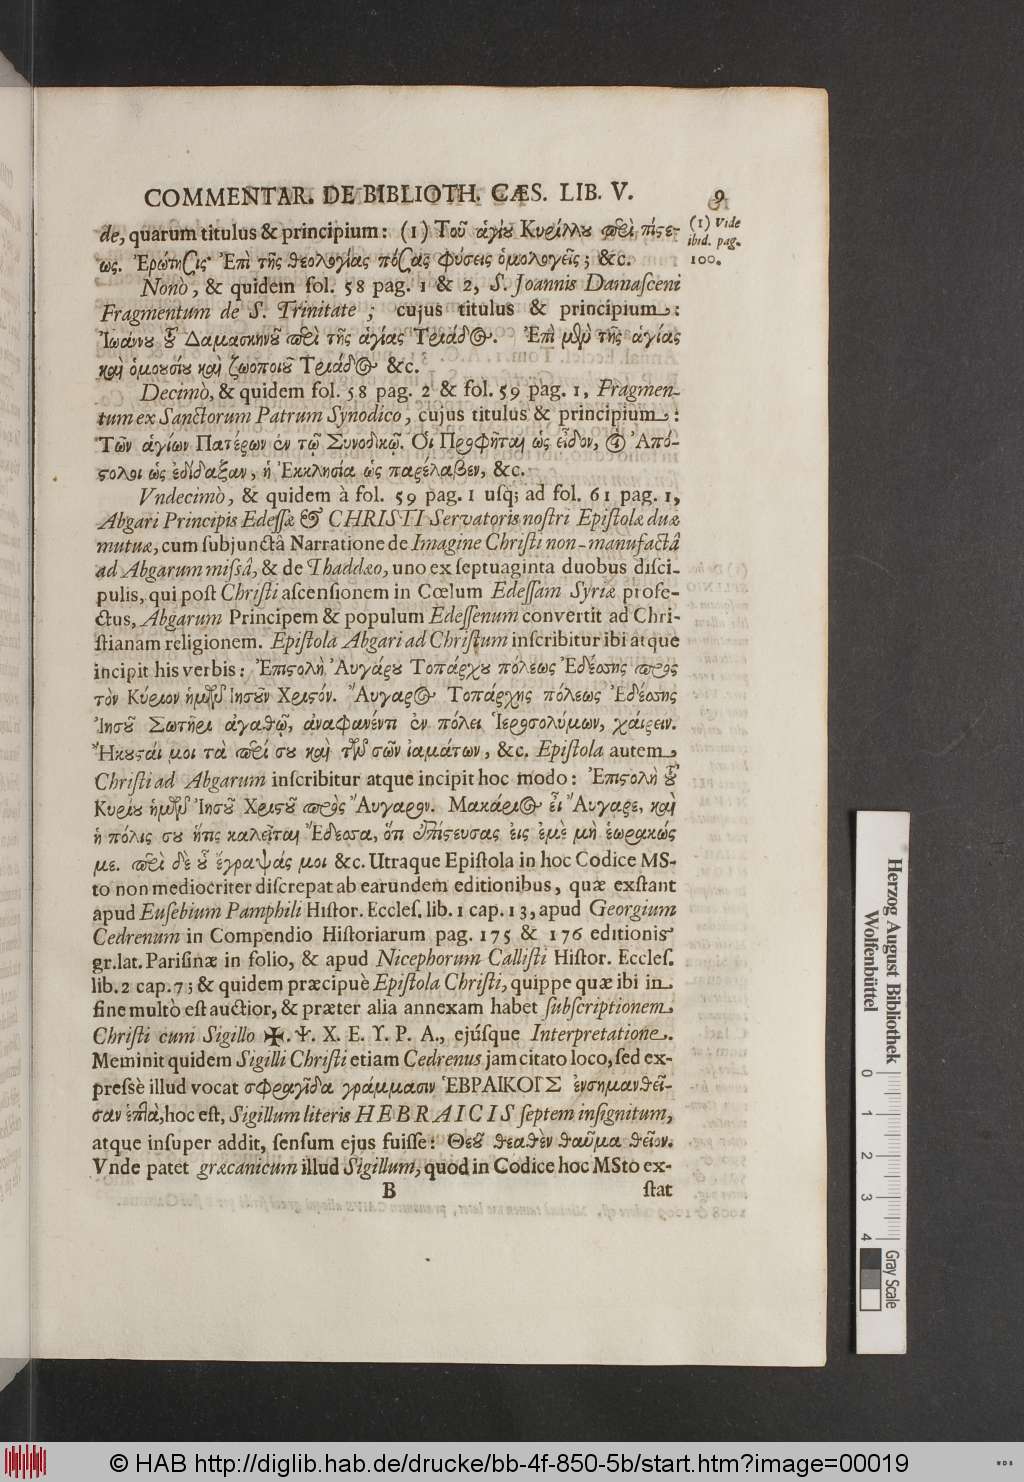 COMMENTAR. DE BIBLIOTH. CÆS. LIB. V. 9
de, quarum titulus & principium: (1) Τοῦ ἁγίου Κυρίλλου περὶ πίστε-
ως. Ἐρώτησις Ἐπὶ τῆς θεολογίας πόσας φύσεις ὁμολογεῖς; &c.
(1) Vide
ibid. pag.
100.
Nonò, & quidem fol. 58 pag. 1 & 2, S. Joannis Damaſceni
Fragmentum de S. Trinitate; cujus titulus & principium:
Ἰωάννου τοῦ Δαμασκηνοῦ περὶ τῆς ἁγίας Τριάδος. Ἐπὶ μὲν τῆς ἁγίας
καὶ ὁμουσίου καὶ ζωοποιοῦ Τριάδος &c.
Decimò, & quidem fol. 58 pag. 2 & fol. 59 pag. 1, Fragmen-
tum ex Sanctorum Patrum Synodico, cujus titulus & principium:
Τῶν ἁγίων Πατέρων ἐν τῷ Συνοδικῷ. Οἱ Προφῆται ὡς εἶδον, οἱ Ἀπό-
στολοι ὡς ἐδίδαξαν, ἡ Ἐκκλησία ὡς παρέλαβεν, &c.
Vndecimò, & quidem à fol. 59 pag. 1 uſq; ad fol. 61 pag. 1,
Abgari Principis Edeſſæ & CHRISTI Servatoris noſtri Epiſtolæ duæ
mutuæ, cum ſubjunctâ Narratione de Imagine Chriſti non-manufactâ
ad Abgarum miſsâ, & de Thaddæo, uno ex ſeptuaginta duobus diſci-
pulis, qui poſt Chriſti aſcenſionem in Cœlum Edeſſam Syriæ profe-
ctus, Abgarum Principem & populum Edeſſenum convertit ad Chri-
ſtianam religionem. Epiſtola Abgari ad Chriſtum inſcribitur ibi atque
incipit his verbis: Ἐπιστολὴ Ἀυγάρου Τοπάρχου πόλεως Ἐδέσης πρὸς
τὸν Κύριον ἡμῶν Ἰησοῦν Χριστόν. Ἄυγαρος Τοπάρχης πόλεως Ἐδέσης
Ἰησοῦ Σωτῆρι ἀγαθῷ, ἀναφανέντι ἐν πόλει Ἱεροσολύμων, χαίρειν.
Ἤκουσταί μοι τὰ περί σου καὶ τῶν σῶν ἰαμάτων, &c. Epiſtola autem
Chriſti ad Abgarum inſcribitur atque incipit hoc modo: Ἐπιστολὴ τοῦ
Κυρίου ἡμῶν Ἰησοῦ Χριστοῦ πρὸς Ἄυγαρον. Μακάριος εἶ Ἄυγαρε, καὶ
ἡ πόλις σου ἥτις καλεῖται Ἔδεσσα, ὅτι ἐπίστευσας εἰς ἐμὲ μὴ ἑωρακώς
με. περὶ δὲ οὗ ἔγραψάς μοι &c. Utraque Epiſtola in hoc Codice MS-
to non mediocriter diſcrepat ab earundem editionibus, quæ exſtant
apud Euſebium Pamphili Hiſtor. Eccleſ. lib. 1 cap. 13, apud Georgium
Cedrenum in Compendio Hiſtoriarum pag. 175 & 176 editionis
gr. lat. Pariſinæ in folio, & apud Nicephorum Calliſti Hiſtor. Eccleſ.
lib. 2 cap. 7; & quidem præcipuè Epiſtola Chriſti, quippe quæ ibi in
fine multò eſt auctior, & præter alia annexam habet ſubſcriptionem
Chriſti cum Sigillo ✠. Ψ. X. E. Υ. P. A., ejúſque Interpretatione.
Meminit quidem Sigilli Chriſti etiam Cedrenus jam citato loco, ſed ex-
preſsè illud vocat σφραγῖδα γράμμασιν ἙΒΡΑΙΚΟΙΣ ἐνσημανθεῖ-
σαν ἑπτὰ, hoc eſt, Sigillum literis HEBRAICIS ſeptem inſignitum,
atque inſuper addit, ſenſum ejus fuiſſe: Θεοῦ θεαθὲν θαῦμα θεῖον.
Vnde patet græcanicum illud Sigillum, quod in Codice hoc MSto ex-
B ſtat
Herzog August Bibliothek
Wolfenbüttel
0 1 2 3 4
Gray Scale
© HAB http://diglib.hab.de/drucke/bb-4f-850-5b/start.htm?image=00019